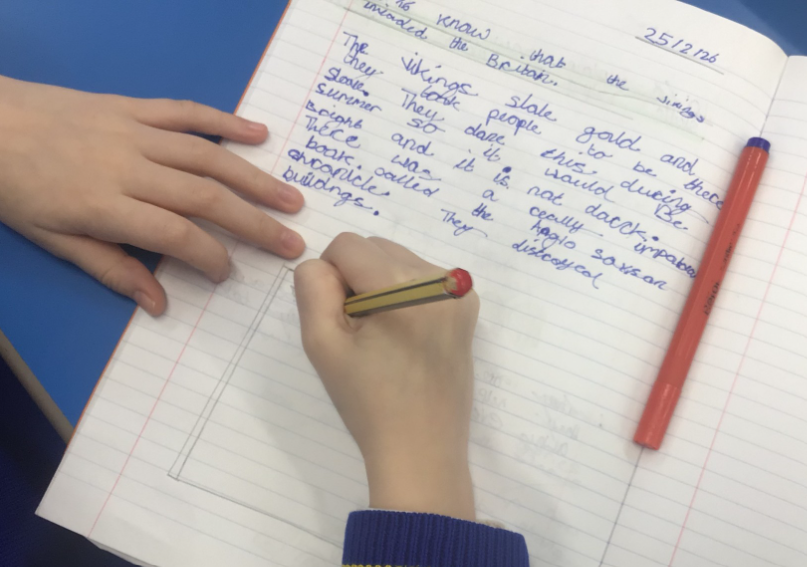 to know that the vikings
invaded the Britain.
25/2/26
The vikings stole gold and
they took people to be there
slave. They dare this during
summer so it would be
bright and it is not darck.
There was a really impatan
book called the Anglo saxson
chronicle. They distroyed
buildings.